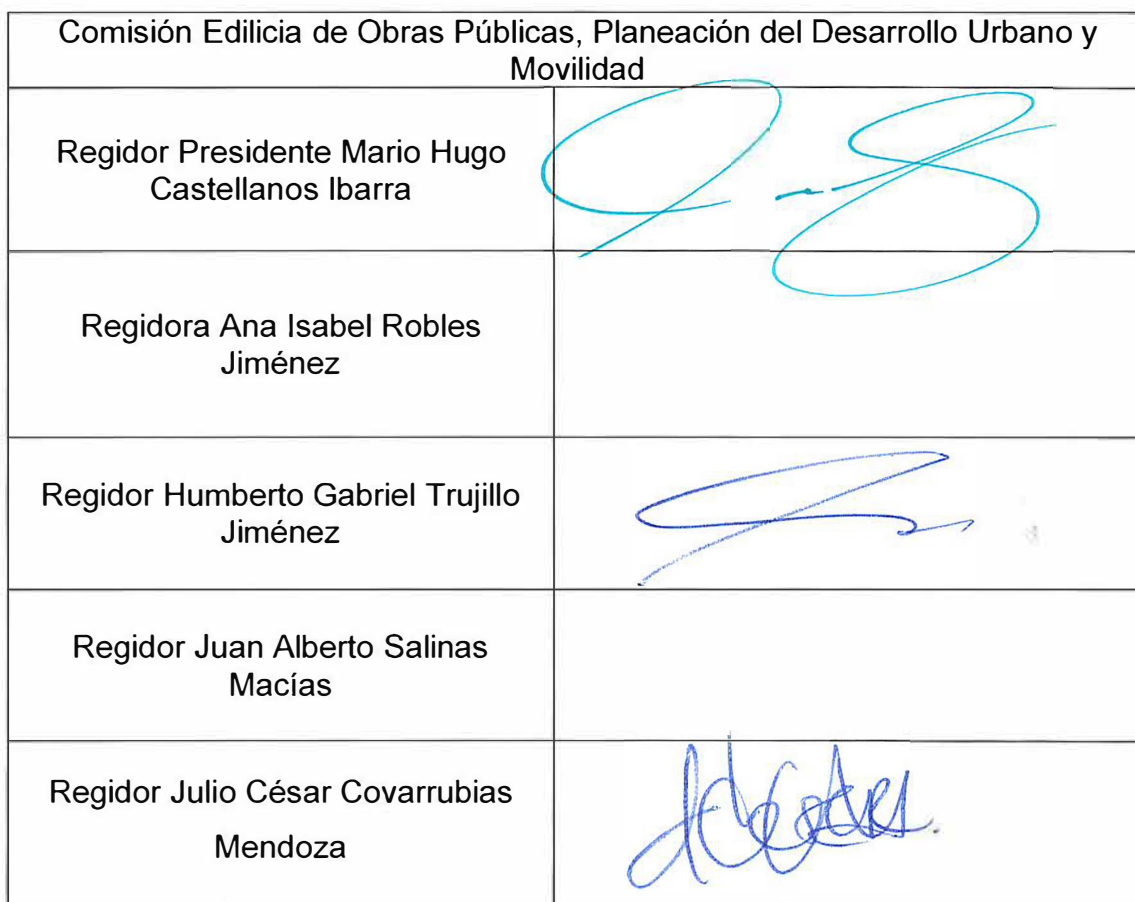 Comisión Edilicia de Obras Públicas, Planeación del Desarrollo Urbano y
Movilidad
Regidor Presidente Mario Hugo
Castellanos Ibarra
Regidora Ana Isabel Robles
Jiménez
Regidor Humberto Gabriel Trujillo
Jiménez
Regidor Juan Alberto Salinas
Macías
Regidor Julio César Covarrubias
Mendoza